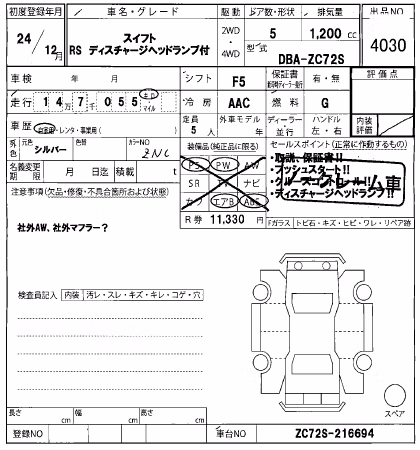 初度登録年月
車名・グレード
駆動
ドア数・形状
排気量
出品NO
24/12月
スイフト
RS ディスチャージヘッドランプ付
2WD
・
4WD
5
1,200 cc
型式
DBA-ZC72S
4030
車検 年 月
シフト
F5
保証書
有・無
評価点
走行 14万7055
キロ
マイル
冷房
AAC
燃料
G
車歴
自家用・レンタ・事業用( )
定員
5人
外車モデル
年
ディーラー
並行
ハンドル
左・右
内装
評価
外色
元色
シルバー
色替
カラーNO
ZNC
装備品(純正品に限る)
PS PW AW
SR TV ナビ
カワ エアB ABS
セールスポイント(正常に作動するもの)
・取説、保証書!!
・プッシュスタート!!
・クルーズコントロール!!
・ディスチャージヘッドランプ!!
クレーム車
名義変更
期限
月 日
積載
t
R券 11,330 円
注意事項(欠品・修復・不具合箇所および状態)
Fガラス トビ石・キズ・ヒビ・ワレ・リペア跡
社外AW、社外マフラー?
検査員記入
内装
汚レ・スレ・キズ・キレ・コゲ・穴
スペア
長さ cm
幅 cm
高さ cm
登録NO
車台NO
ZC72S-216694